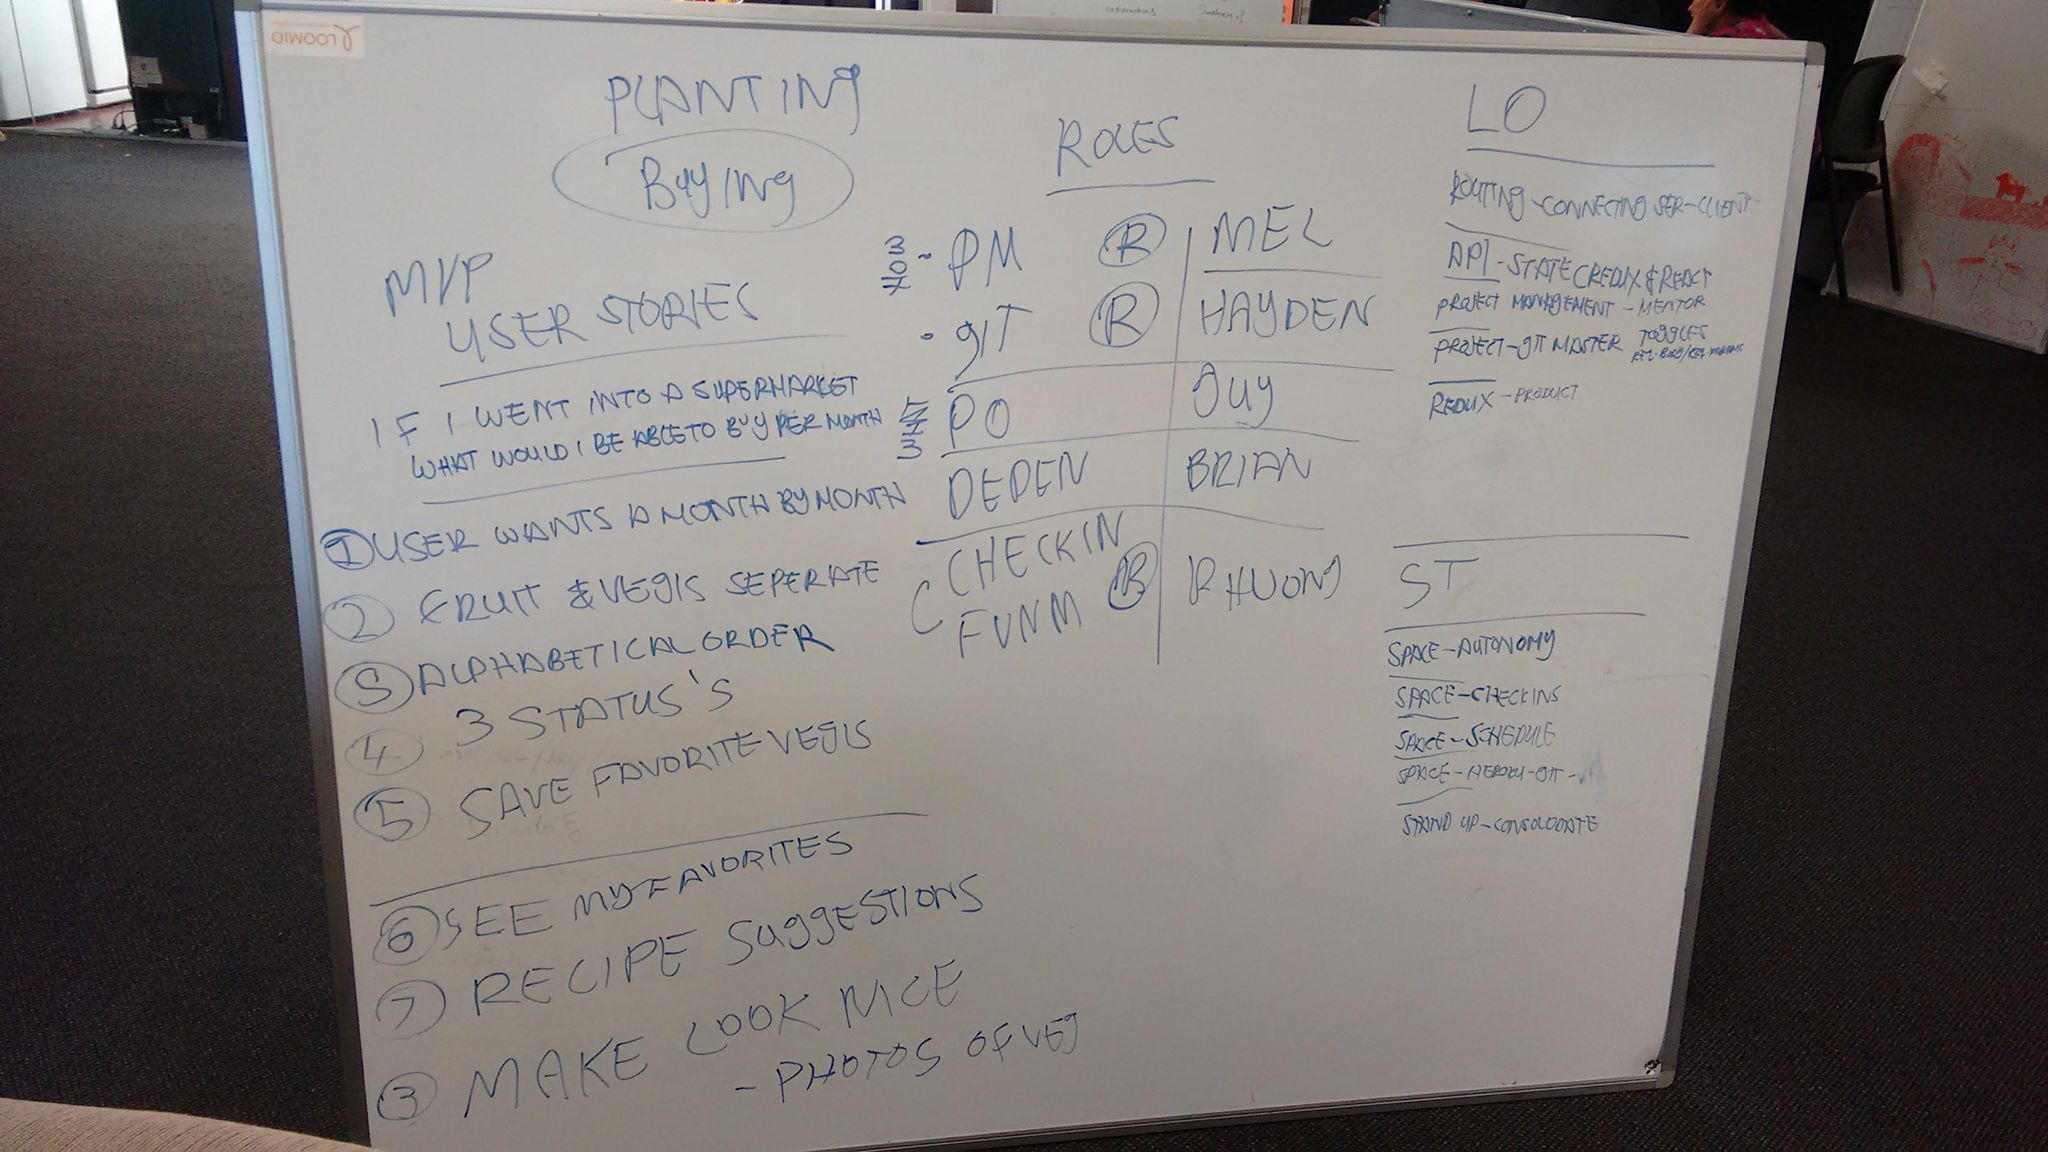 LOOMIO
PLANTING
BUYING
MVP
USER STORIES
IF I WENT INTO A SUPERMARKET
WHAT WOULD I BE ABLE TO BUY PER MONTH
1 USER WANTS A MONTH BY MONTH
2 FRUIT & VEGIS SEPERATE
3 ALPHABETICAL ORDER
4 3 STATUS'S
5 SAVE FAVORITE VEGIS
6 SEE MY FAVORITES
7 RECIPE SUGGESTIONS
MAKE LOOK NICE
- PHOTOS OF VEG
ROLES
- PM R MEL
• GIT R HAYDEN
PO GUY
DEDEN BRIAN
CHECKIN
FUNM R PHUONG
LO
ROUTING - CONNECTING SER-CLIENT
API - STATE (REDUX & REACT
PROJECT MANAGEMENT - MENTOR
PROJECT - GIT MASTER TOGGLES
REDUX - PRODUCT
ST
SPACE - AUTONOMY
SPACE - CHECKINS
SPACE - SCHEDULE
SPACE - HEROKU - GIT -
STAND UP - CONSOLODATE